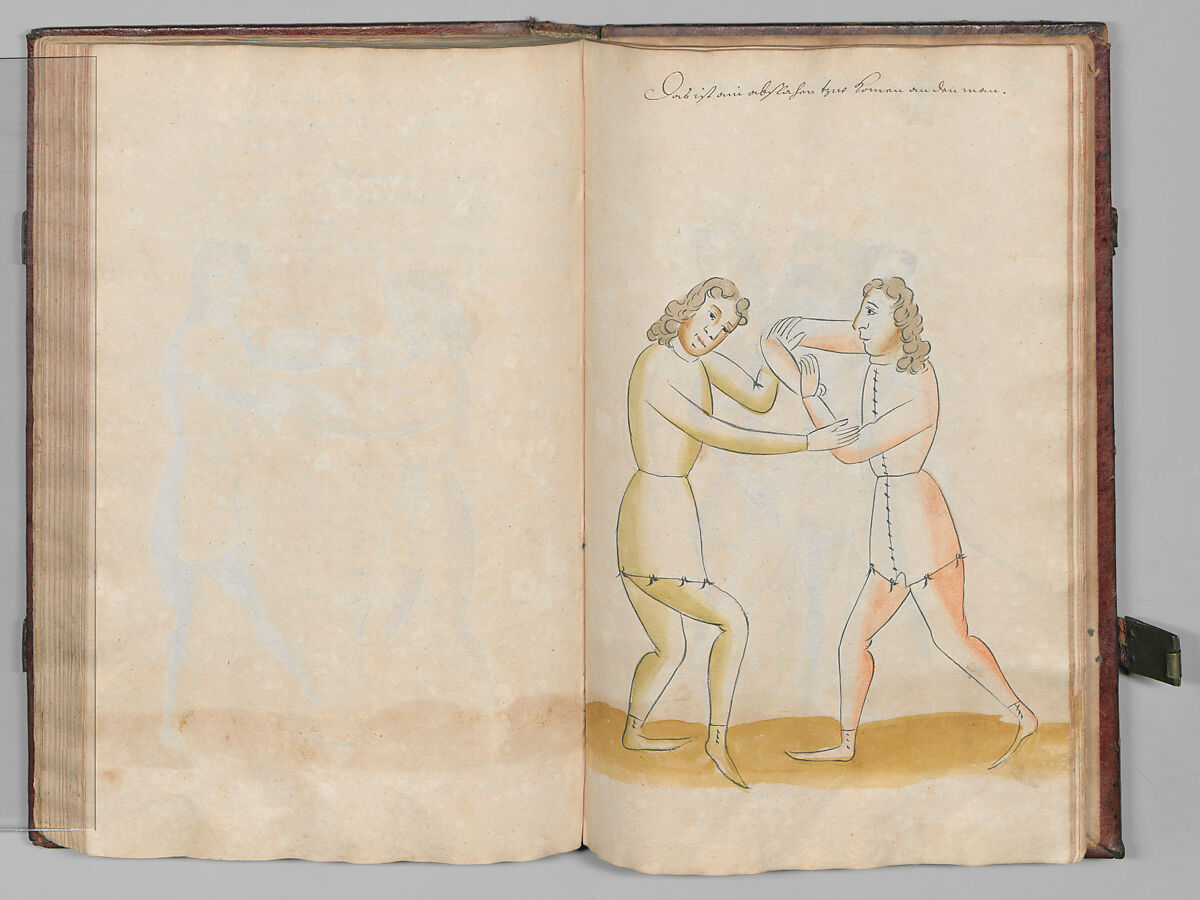 Das ist ain abslahen tzus komen an den man.